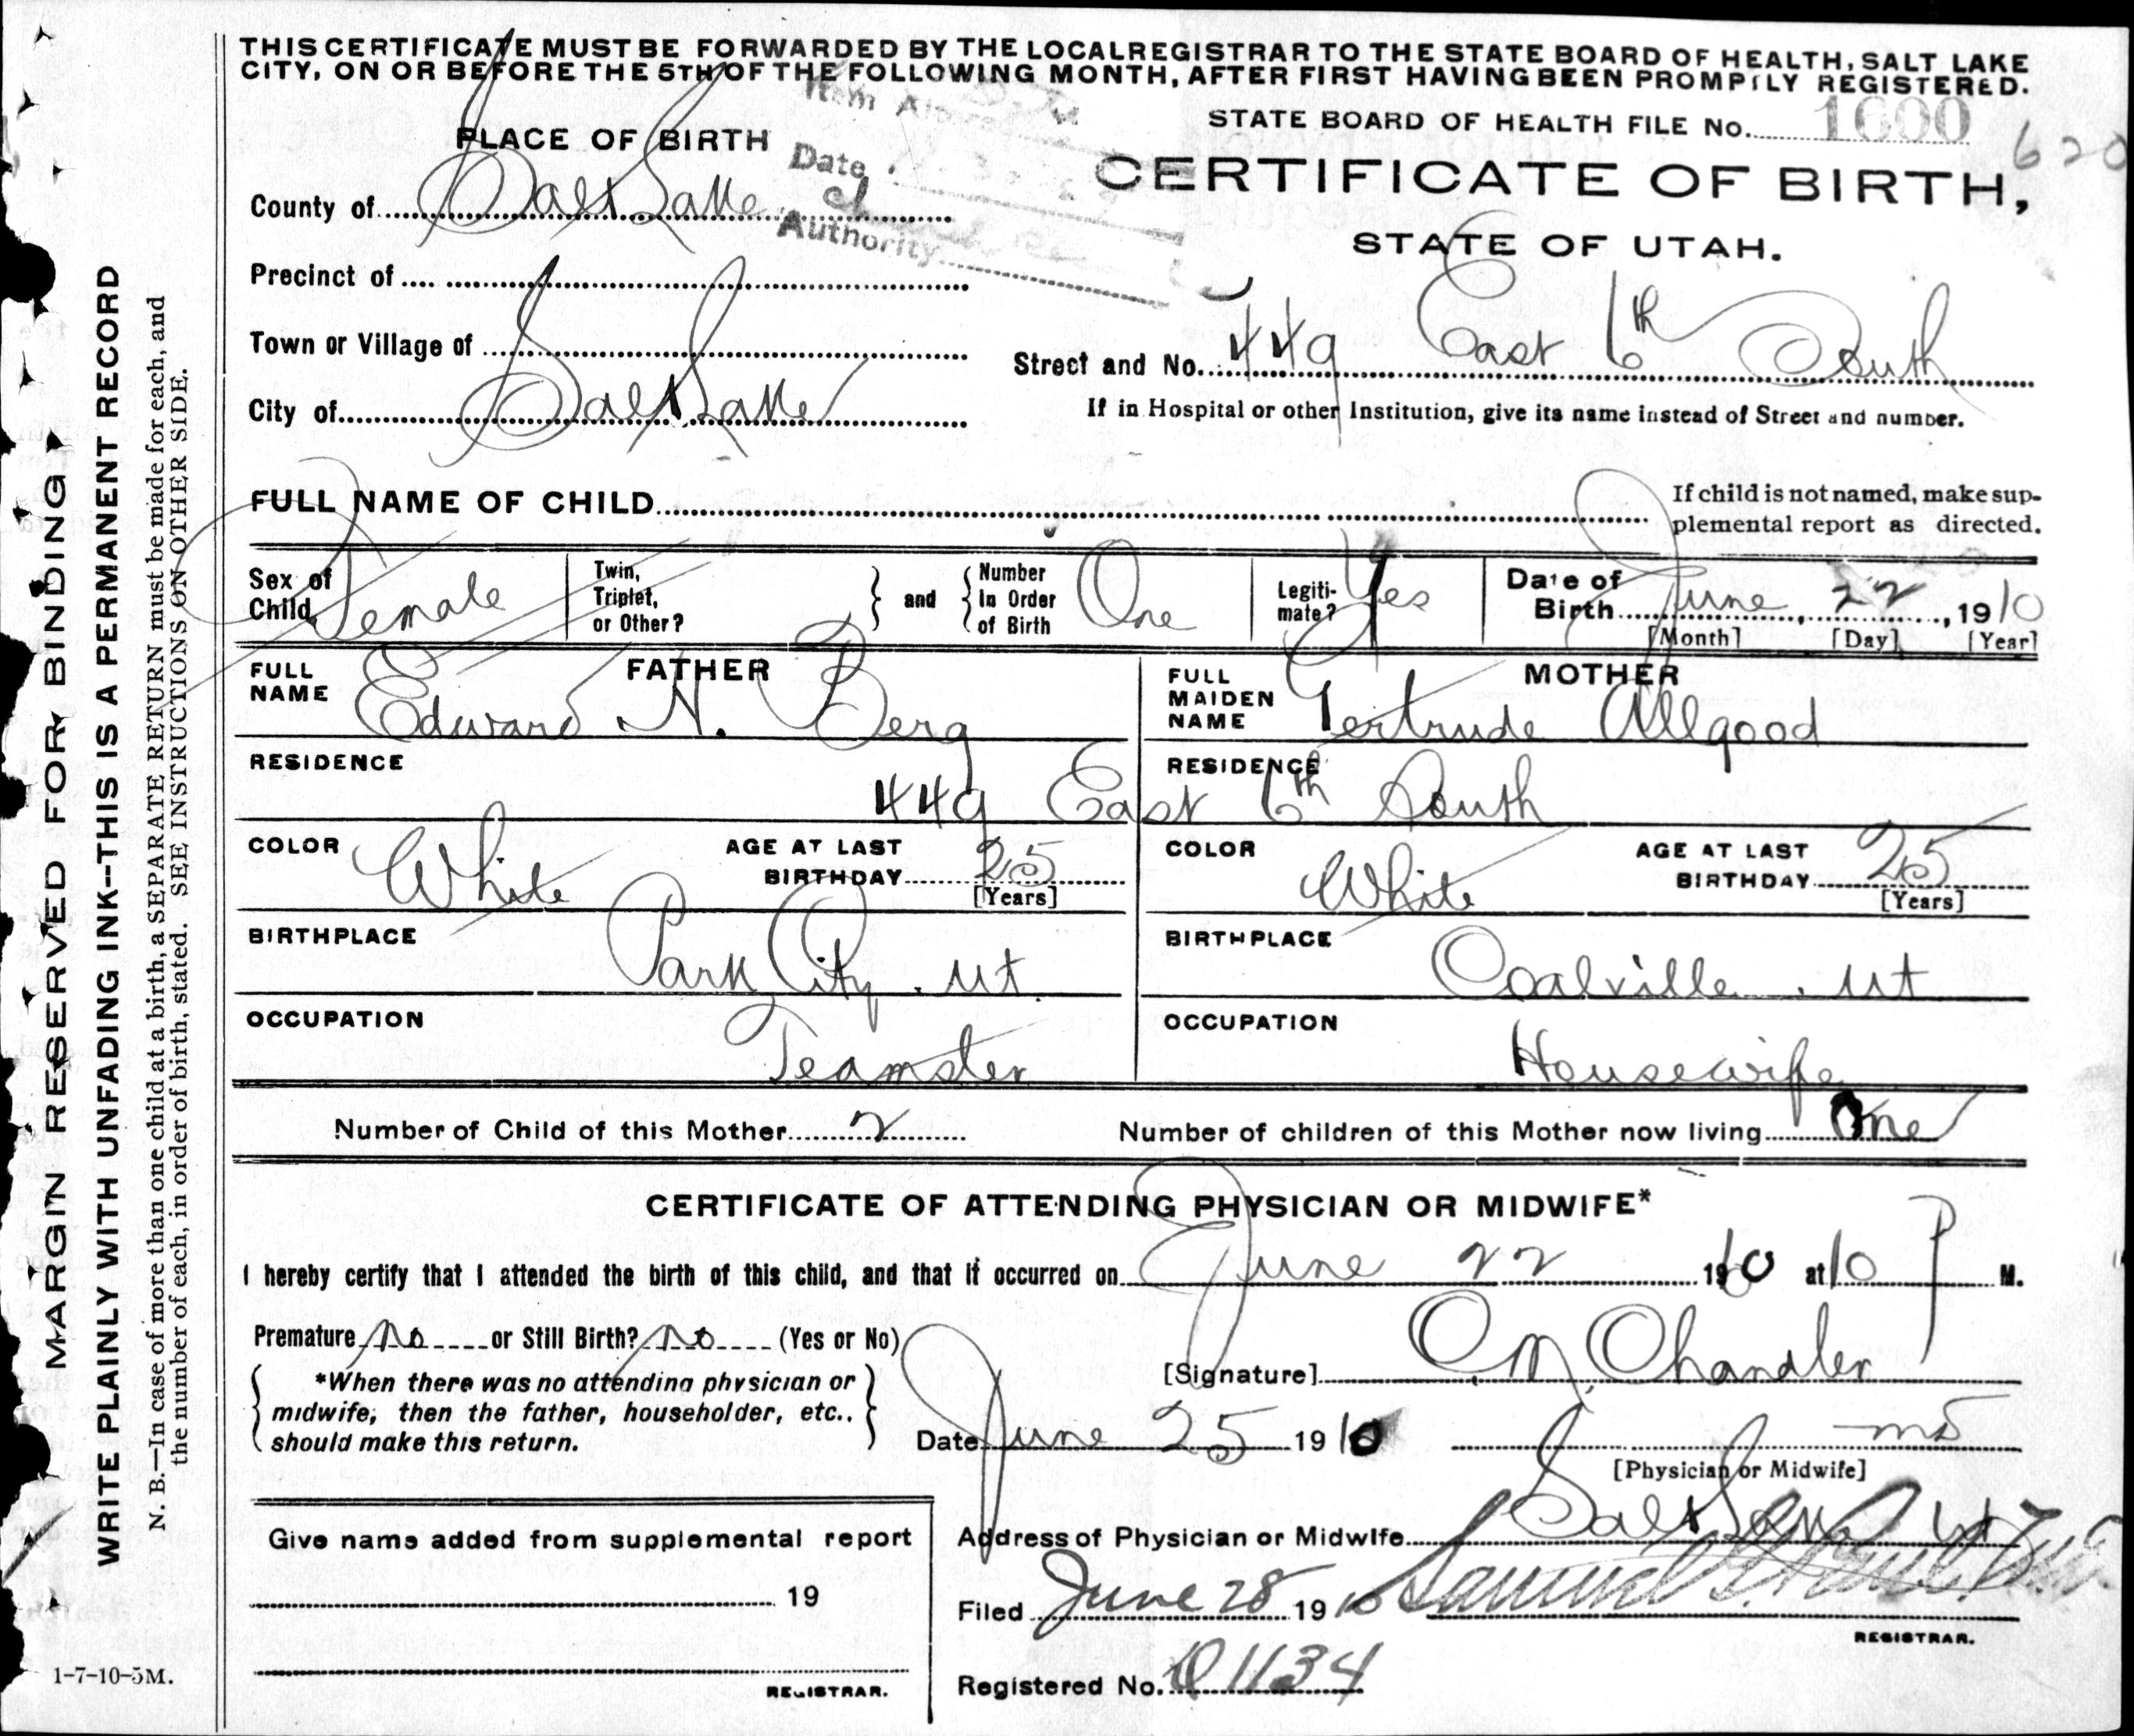 THIS CERTIFICATE MUST BE FORWARDED BY THE LOCAL REGISTRAR TO THE STATE BOARD OF HEALTH, SALT LAKE
CITY, ON OR BEFORE THE 5TH OF THE FOLLOWING MONTH, AFTER FIRST HAVING BEEN PROMPTLY REGISTERED.
STATE BOARD OF HEALTH FILE No. 1600
620
PLACE OF BIRTH
Item
Date
Authority
CERTIFICATE OF BIRTH,
STATE OF UTAH.
County of Salt Lake
Precinct of
Town or Village of
City of Salt Lake
Street and No. 449 East 6th South
If in Hospital or other Institution, give its name instead of Street and number.
FULL NAME OF CHILD
If child is not named, make sup-
plemental report as directed.
Sex of Child Female
Twin, Triplet, or Other?
and
Number In Order of Birth One
Legiti-mate? Yes
Date of Birth June 22, 1910
[Month] [Day] [Year]
FATHER
FULL NAME Edward N. Berg
MOTHER
FULL MAIDEN NAME Gertrude Allgood
RESIDENCE
RESIDENCE
449 East 6th South
COLOR White
AGE AT LAST BIRTHDAY 25
[Years]
COLOR White
AGE AT LAST BIRTHDAY 25
[Years]
BIRTHPLACE Park City. Ut.
BIRTHPLACE Coalville. Ut
OCCUPATION Teamster
OCCUPATION Housewife
Number of Child of this Mother 2
Number of children of this Mother now living One
CERTIFICATE OF ATTENDING PHYSICIAN OR MIDWIFE*
I hereby certify that I attended the birth of this child, and that it occurred on June 22 1910 at 10 P M.
Premature No or Still Birth? No (Yes or No)
*When there was no attending physician or
midwife, then the father, householder, etc.,
should make this return.
[Signature] O. M. Chandler
Date June 25 1910
MD
[Physician or Midwife]
Give name added from supplemental report
19
REGISTRAR.
Address of Physician or Midwife Salt Lake Ut
Filed June 28 1910 Samuel G. Paul
REGISTRAR.
Registered No. 1134
MARGIN RESERVED FOR BINDING
WRITE PLAINLY WITH UNFADING INK--THIS IS A PERMANENT RECORD
N. B.—In case of more than one child at a birth, a SEPARATE RETURN must be made for each, and
the number of each, in order of birth, stated. SEE INSTRUCTIONS ON OTHER SIDE.
1-7-10-5M.